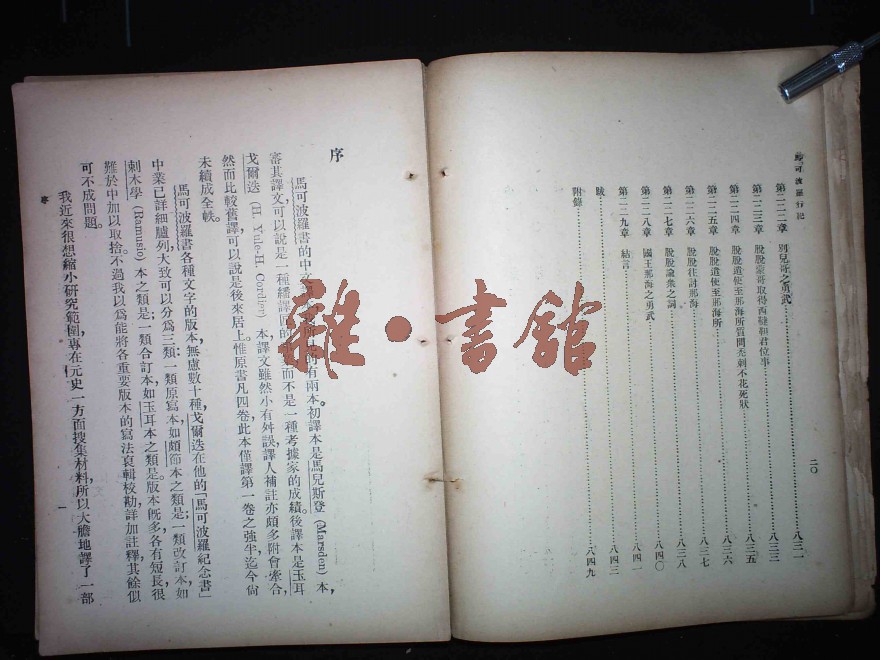 馬可波羅行記
二〇
第二二二章 別兒哥之勇武……八三一
第二二三章 脫脫蒙哥取得西韃靼君位事……八三三
第二二四章 脫脫遣使至那海所質問禿剌不花死狀……八三五
第二二五章 脫脫遣使至那海所……八三六
第二二六章 脫脫往討那海……八三七
第二二七章 脫脫諭衆之詞……八三八
第二二八章 國王那海之勇武……八四〇
第二二九章 結言……八四一
跋……八四三
附錄……八四九
序
馬可波羅書的中文有兩本。初譯本是馬兒斯登 (Marsden) 本，
審其譯文，可以說是一種翻譯匠的而不是一種考據家的成績。後譯本是玉耳
戈爾迭 (H. Yule-H. Cordier) 本，譯文雖然小有舛誤，譯人補註亦頗多附會牽合，
然而比較舊譯，可以說是後來居上。惟原書凡四卷，此本僅譯第一卷之強半，迄今尙
未續成全帙。
馬可波羅書各種文字的版本，無慮數十種，戈爾迭在他的「馬可波羅紀念書」
中業已詳細臚列，大致可以分爲三類：一類原寫本，如頗節本之類是；一類改訂本，如
剌木學 (Ramusio) 本之類是；一類合訂本，如玉耳本之類是。版本旣多，各有短長，很
難於中加以取捨。不過我以爲能將各重要版本的寫法裒輯校勘，詳加註釋，其餘似
可不成問題。
我近來很想縮小研究範圍，專在元史一方面搜集材料，所以大膽地譯了一部
序
一
雜·書館